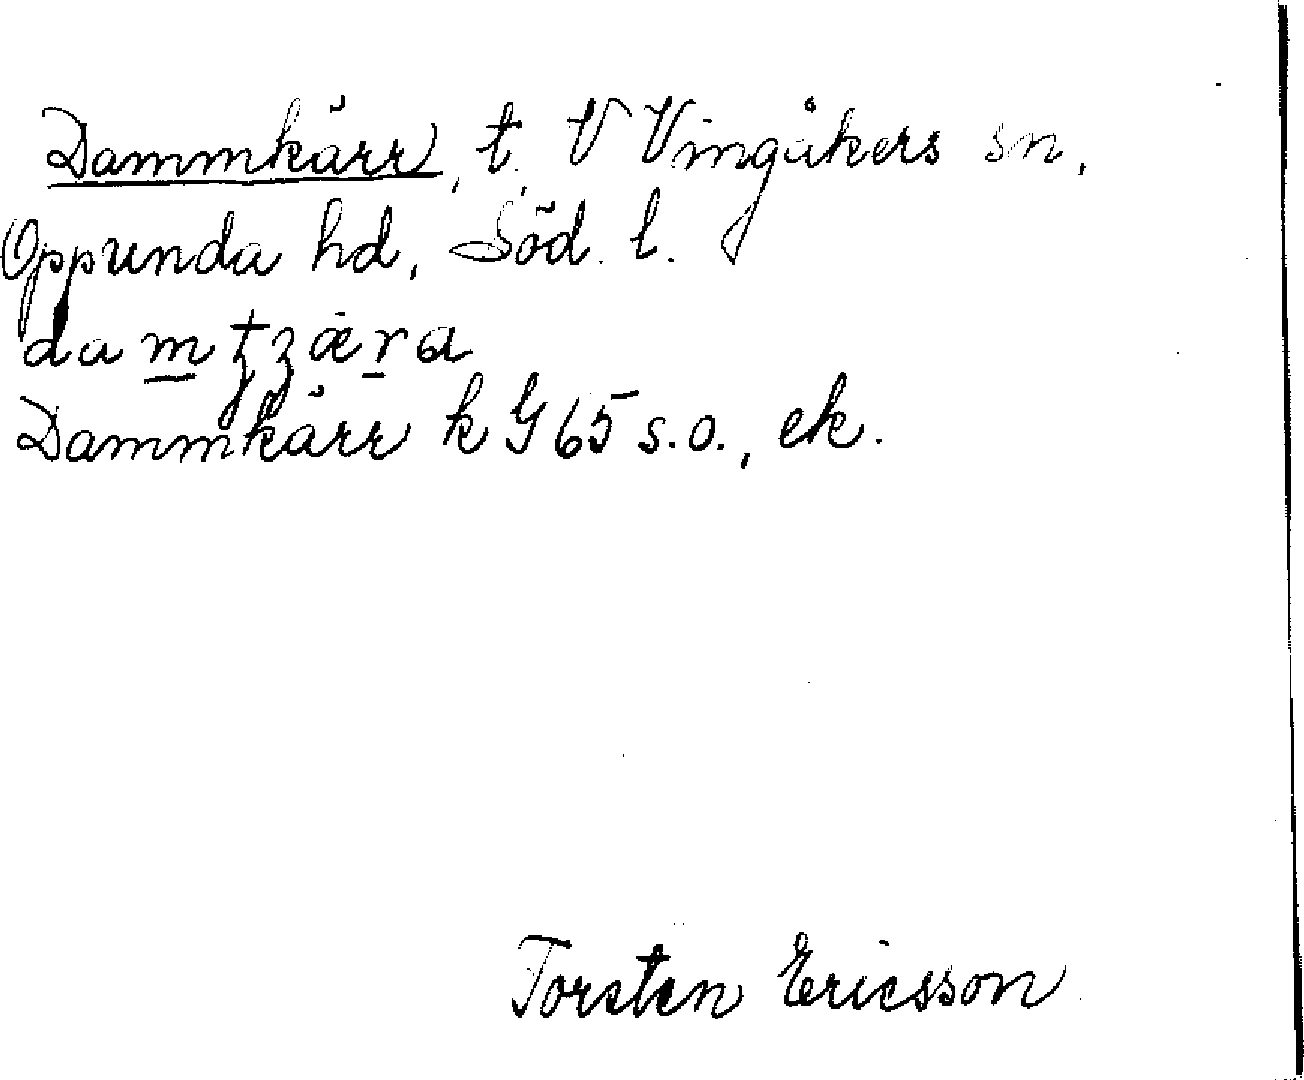 Dammkärr, t. V Vingåkers sn,
Oppunda hd, Söd. l.
damʈʒæra
Dammkärr k G 65 s.o., ek.
Torsten Ericsson